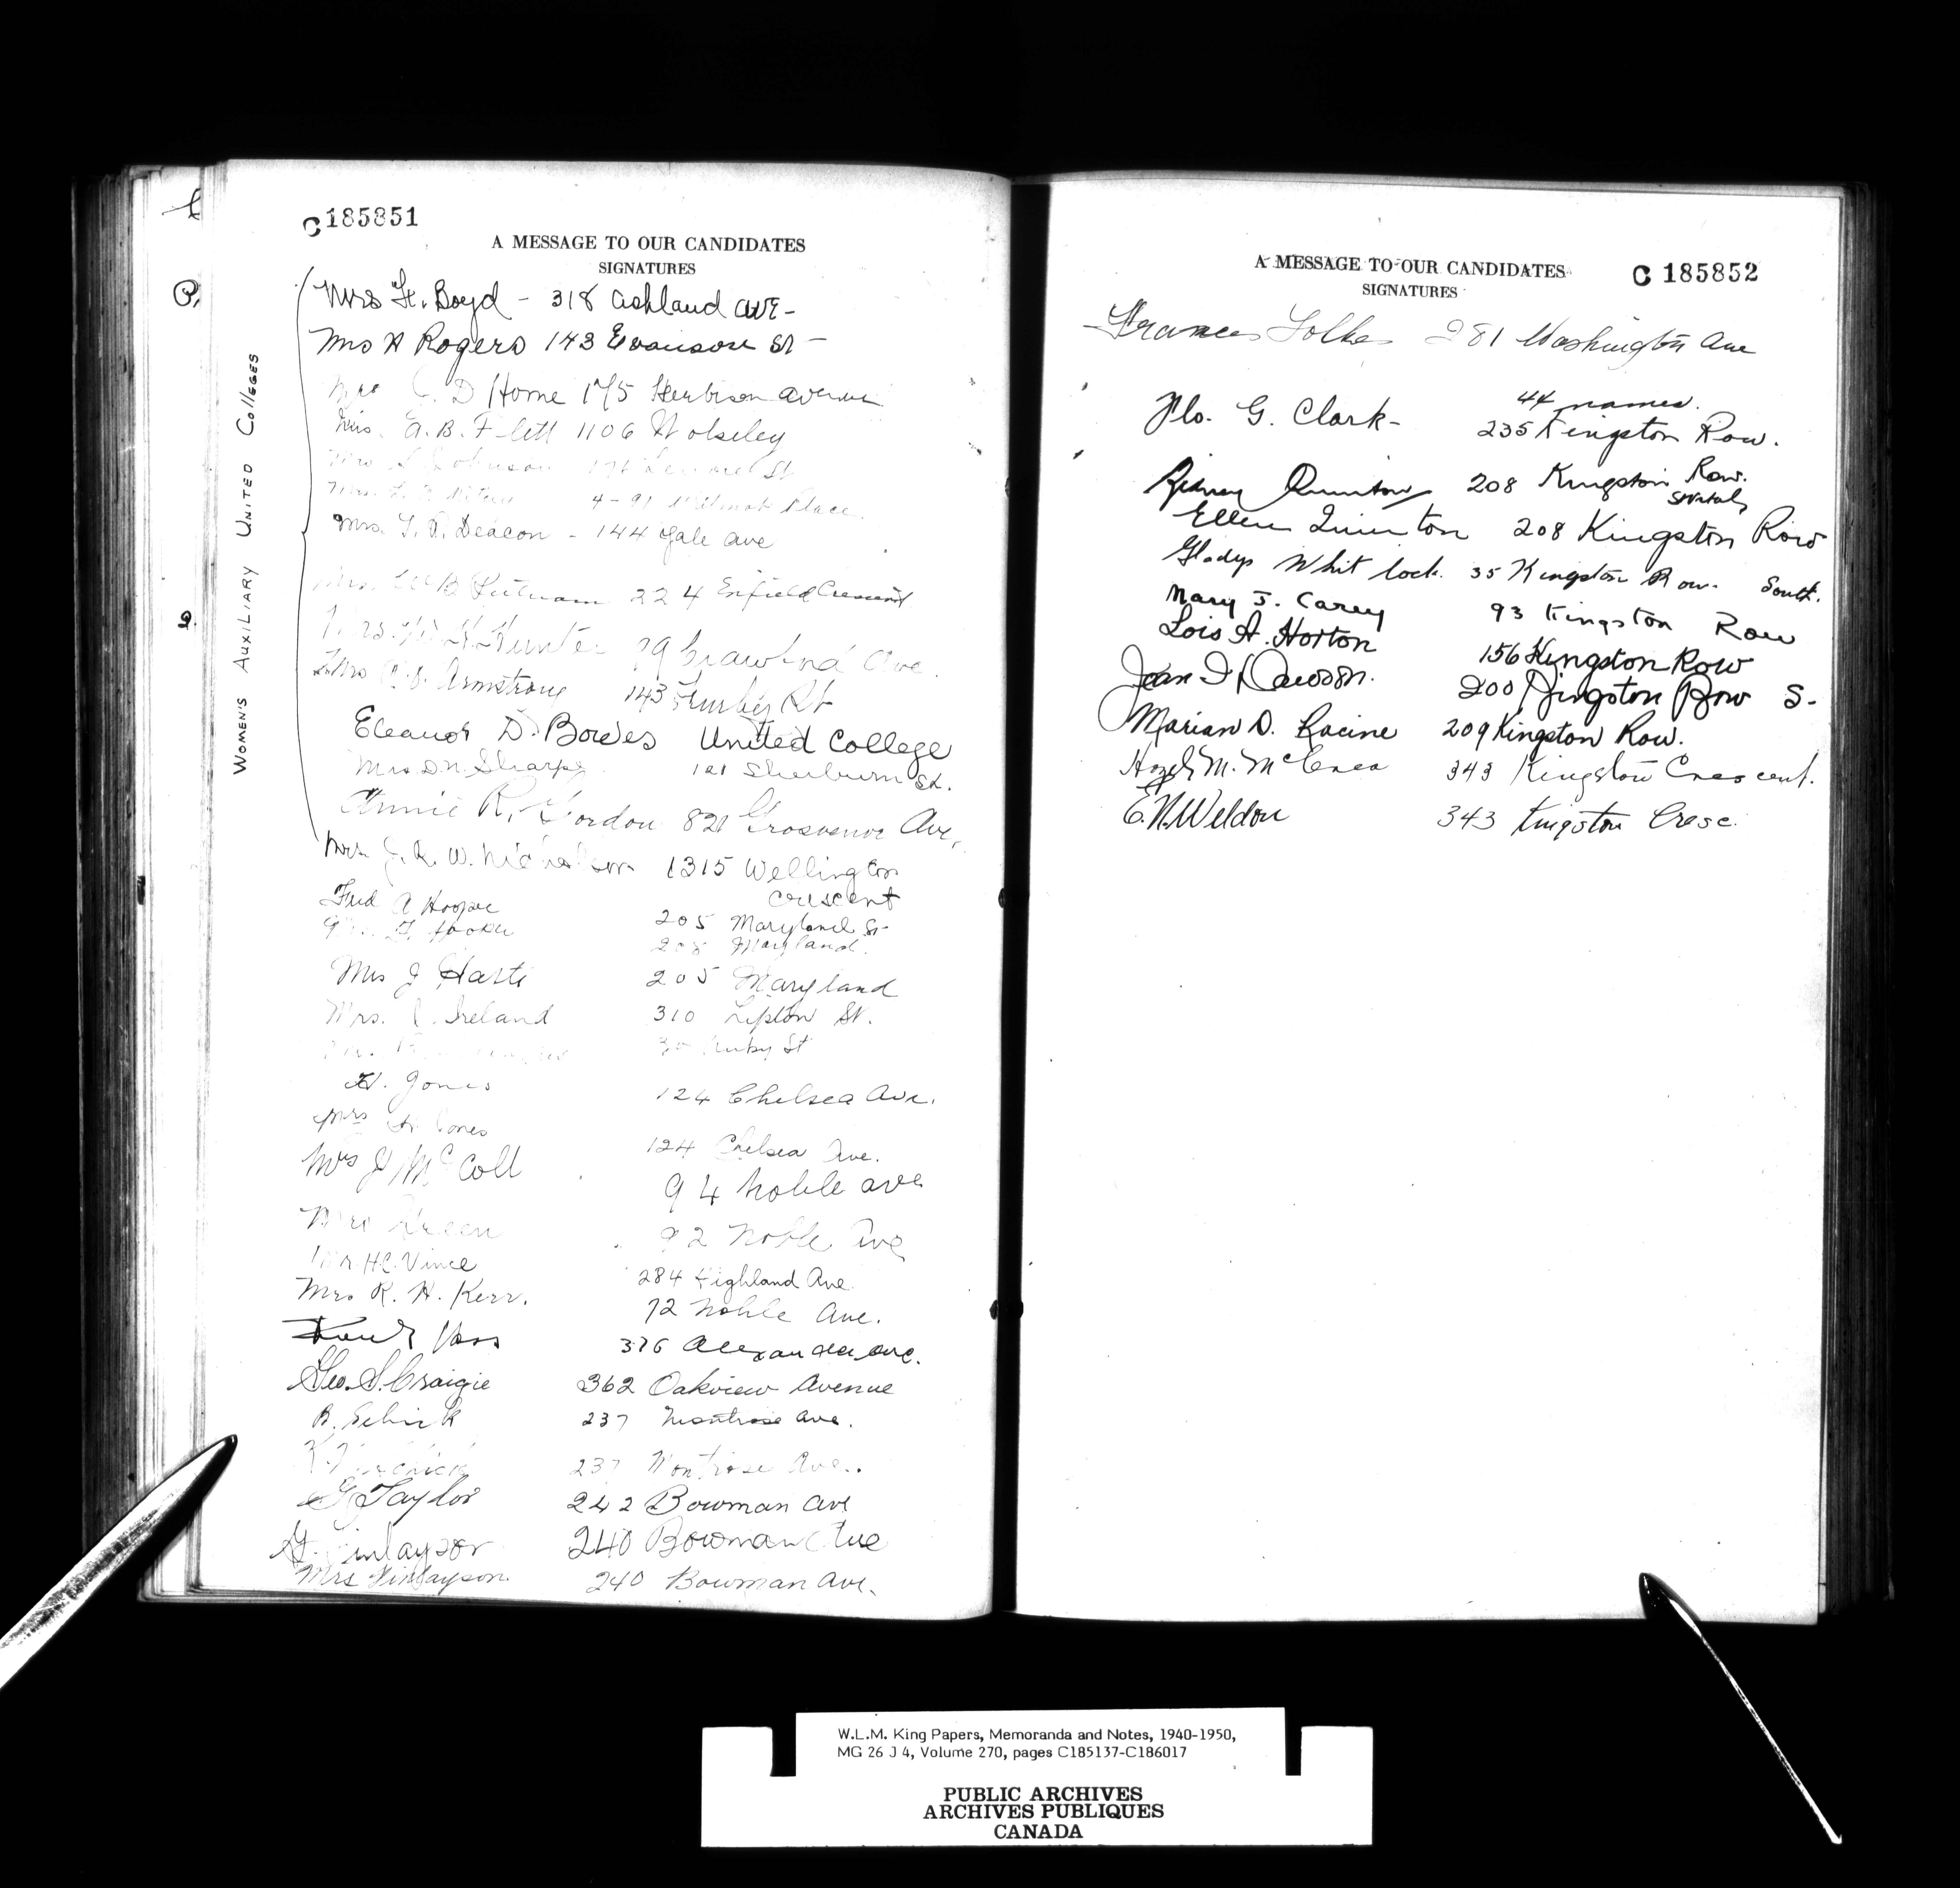 C 185851
A MESSAGE TO OUR CANDIDATES
SIGNATURES
WOMEN'S AUXILIARY UNITED COLLEGES
Mrs H. Boyd - 318 Ashland Ave -
Mrs A Rogers 143 Evanson St -
D Horne 175 Herbison Avenue
Mrs. A. B. Flett 1106 Wolseley
Johnson St
4-91 Wilmot Place.
Mrs. T. R. Deacon - 144 Yale Ave
Mrs. W B Putnam 224 Enfield Crescent
Mrs. Hunter 79 Crawford Ave.
Mrs Armstrong 143 Furby St
Eleanor D. Bowes United College
Mrs D.N. Sharpe 121 Sherburn St.
Annie R. Gordon 821 Grosvenor Ave.
Mrs J. R. W. Nicholson 1315 Wellington
Crescent
Fred A Hooper 205 Maryland St
205 Maryland.
Mrs J Harte 205 Maryland
Mrs. J. Ireland 310 Lipton St.
St
H. Jones 124 Chelsea Ave.
Mrs H Jones 124 Chelsea Ave.
Mrs J McColl 94 Noble Ave
Mrs Green 92 Noble Ave
H.C. Vince 284 Highland Ave
Mrs R. H. Kerr. 72 Noble Ave.
376 Alexander Ave.
Geo. S. Craigie 362 Oakview Avenue
B. 237 Montrose Ave.
237 Montrose Ave..
G Taylor 242 Bowman Ave
G. Finlayson 240 Bowman Ave
Mrs Finlayson. 240 Bowman Ave.
A MESSAGE TO OUR CANDIDATES
SIGNATURES
C 185852
Frances 281 Washington Ave
44 names.
Flo. G. Clark - 235 Kingston Row.
Quinton 208 Kingston Row.
St Vital
Ellen Quinton 208 Kingston Row
Gladys Whitlock. 35 Kingston Row. South.
Mary J. Carey 93 Kingston Row
Lois A. Horton 156 Kingston Row
Jean I Dawson. 200 Kingston Row S.
Marian D. Racine 209 Kingston Row.
Hazel M. 343 Kingston Crescent.
E. N. Weldon 343 Kingston Cresc.
W.L.M. King Papers, Memoranda and Notes, 1940-1950,
MG 26 J 4, Volume 270, pages C185137-C186017
PUBLIC ARCHIVES
ARCHIVES PUBLIQUES
CANADA